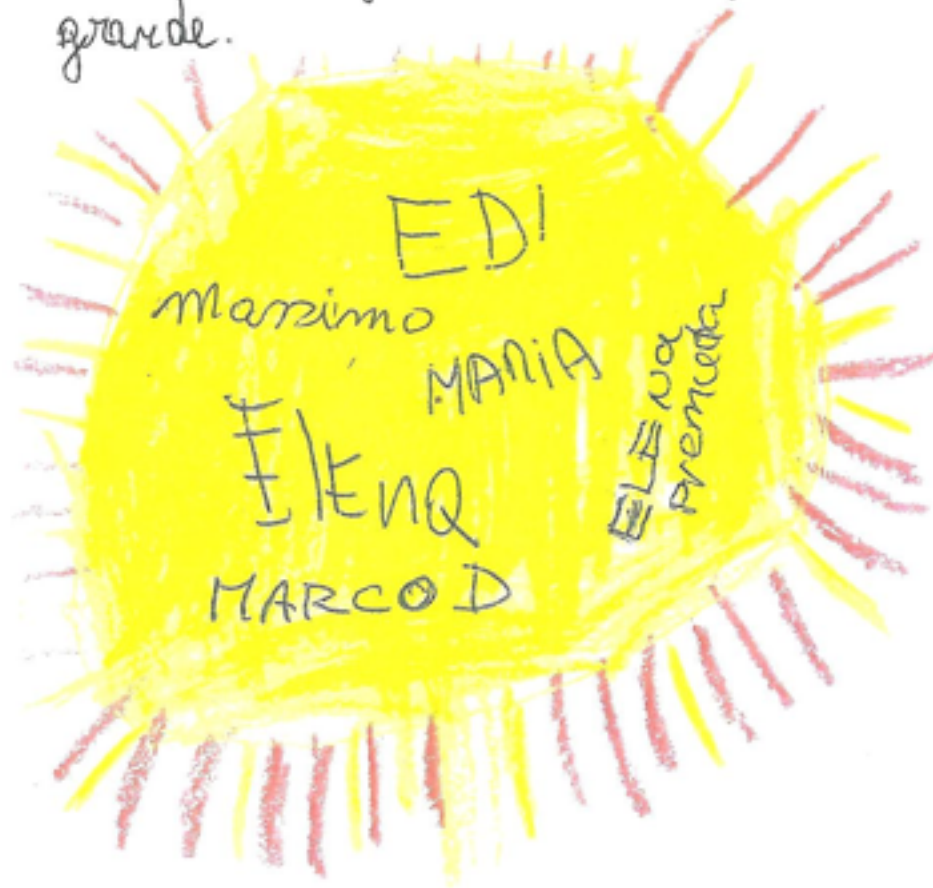 grande.
EDI
Massimo
MARIA
ELENA
ElEnA
MARCO D